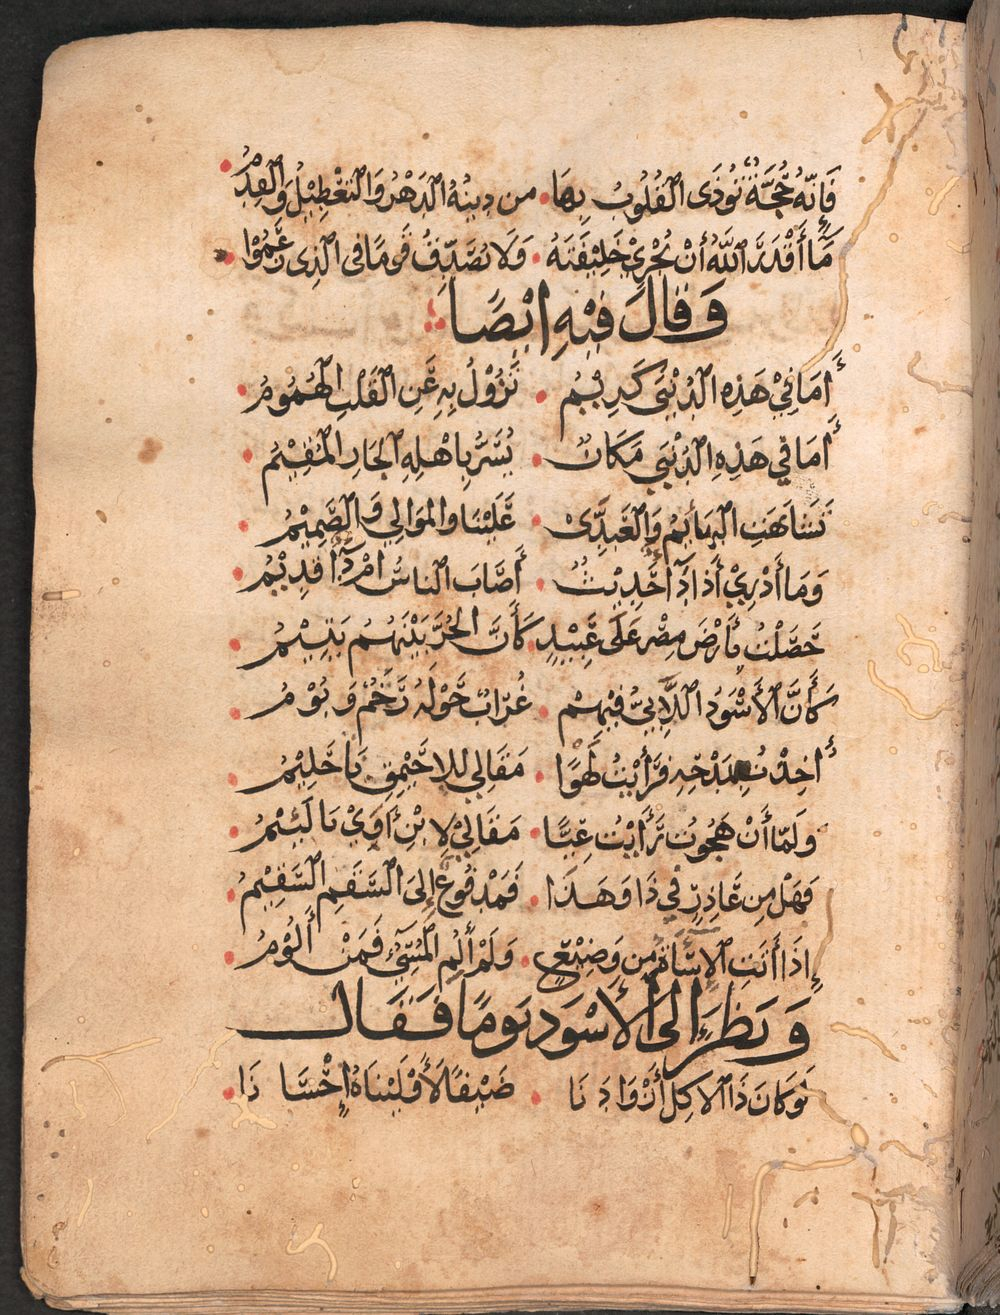 فَإِنَّهُ حُجَّةٌ تُؤذَى الْقُلُوبُ بِهَا • من دِينُهُ الدَهْرُ وَالتَعْطِيْلُ وَالْقِدَمُ
مَا أَقْدَرَ اللَّهُ أَنْ يُخْزِي خَلِيْفَتَهُ • وَلَا يُصَدِّقُ قَومًا فى الذِى زَعَمُوْا
وَقَالَ فِيْهِ ايْضًا
أَمَا فِيْ هَذِهِ الدُنْيَى كَرِيْمُ • تَزُوْلُ بِهِ عَنِ الْقَلْبِ الْهُمُومُ
أَمَا فِي هَذِهِ الدُنْيَى مَكَانٌ • يُسَرُّ بِاهْلِهِ الجَارِ الْمُقِيْمُ
تَشَابَهَتِ الْبَهَائِمُ وَالْعَبِدَّىْ • عَلَيْنَا وَالمَوَالِي وَالصَّمِيْمُ
وَمَا أَدْرِيْ أَذَا دَآ احَدِيْثٌ • أَصَابَ النَاسَ امْ دَآ قَدِيْمُ
حَصَلْتُ بِأَرْضِ مِصْرَ عَلَى عَبِيْدٍ • كَأَنَّ الحُرَّ بَيْنَهُمُ يَتِيْمُ
كَأَنَّ الأَسْوَدُ اللَّابِيَّ فِيْهِمْ • غُرَابٌ حَوْلَهُ رَخَمٌ وَبُوْمُ
أُخِذْتُ بِمَدْحِهِ فَرَأَيْتُ لَهْوًا • مَقَالِي لِلاحَيْمِقِ يَا حَلِيْمُ
وَلَمّا أَنْ هَجَوتُ رَأَيْتُ عِيًّا • مَقَالِيْ لِابْنِ آوَىْ يَا لَئِيْمُ
فَهَلْ مِن عَاذِرٍ فِي ذَا وَهَذَا • فَمَدْفُوعٌ إِلَى السَّقَمِ السَّقِيْمُ
إِذَا أَتَتِ الإِسَاةُ مِن وَضِيْعٍ • وَلَمْ أَلُمِ المُسِيءَ فَمَنْ أَلُومُ
وَنَظَرَ إِلى الأَسْوَدِ يَومًا فَقَالَ
لَوْ كَانَ ذَا الآكِلُ أَزْوَادِنَا • ضَيْفًا لَأَوْلَيْنَاهُ إِحْسَانَا